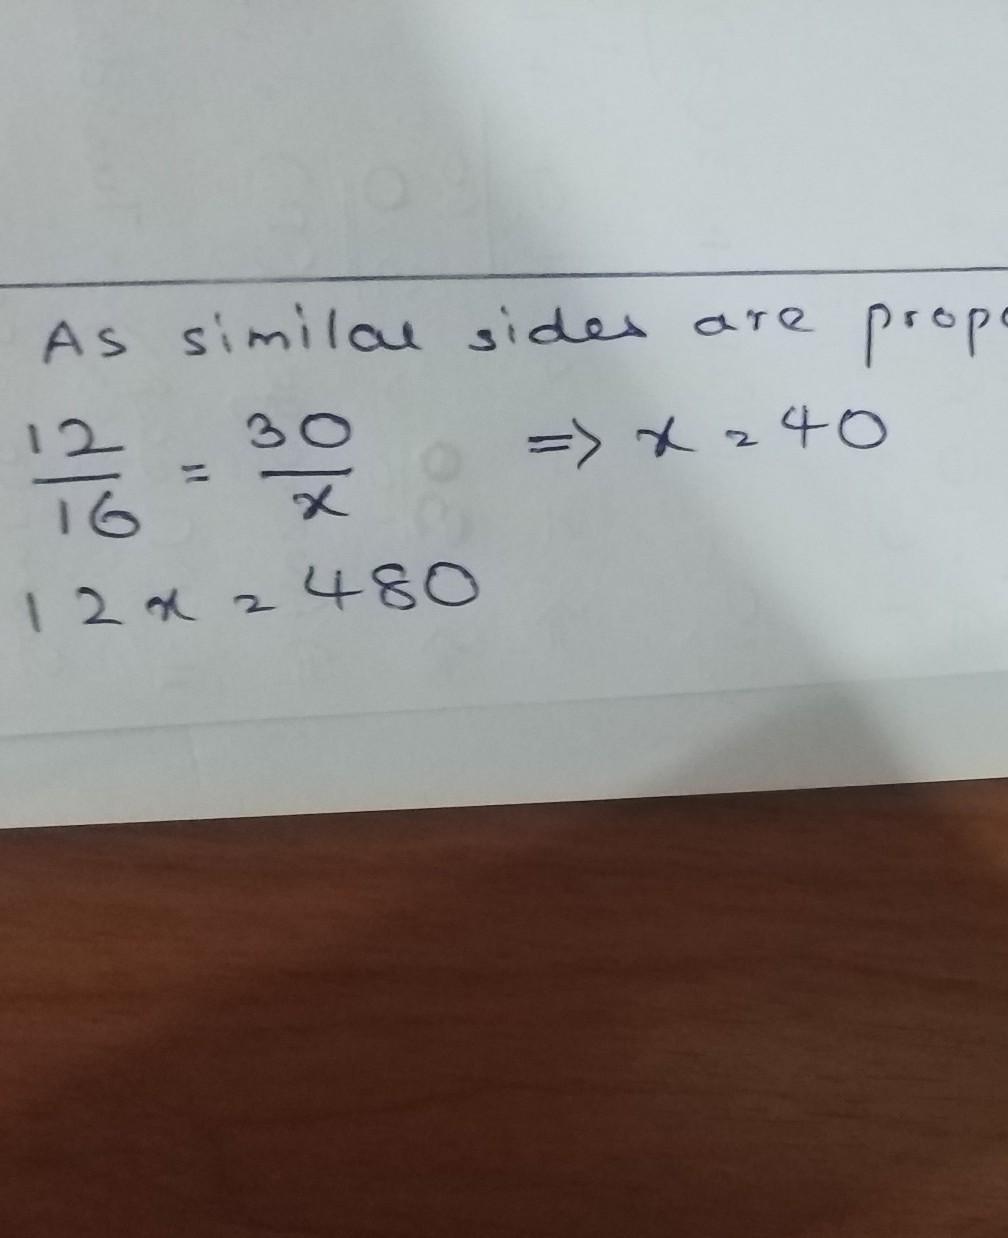 As similar sides are prop
12/16 = 30/x => x = 40
12x = 480